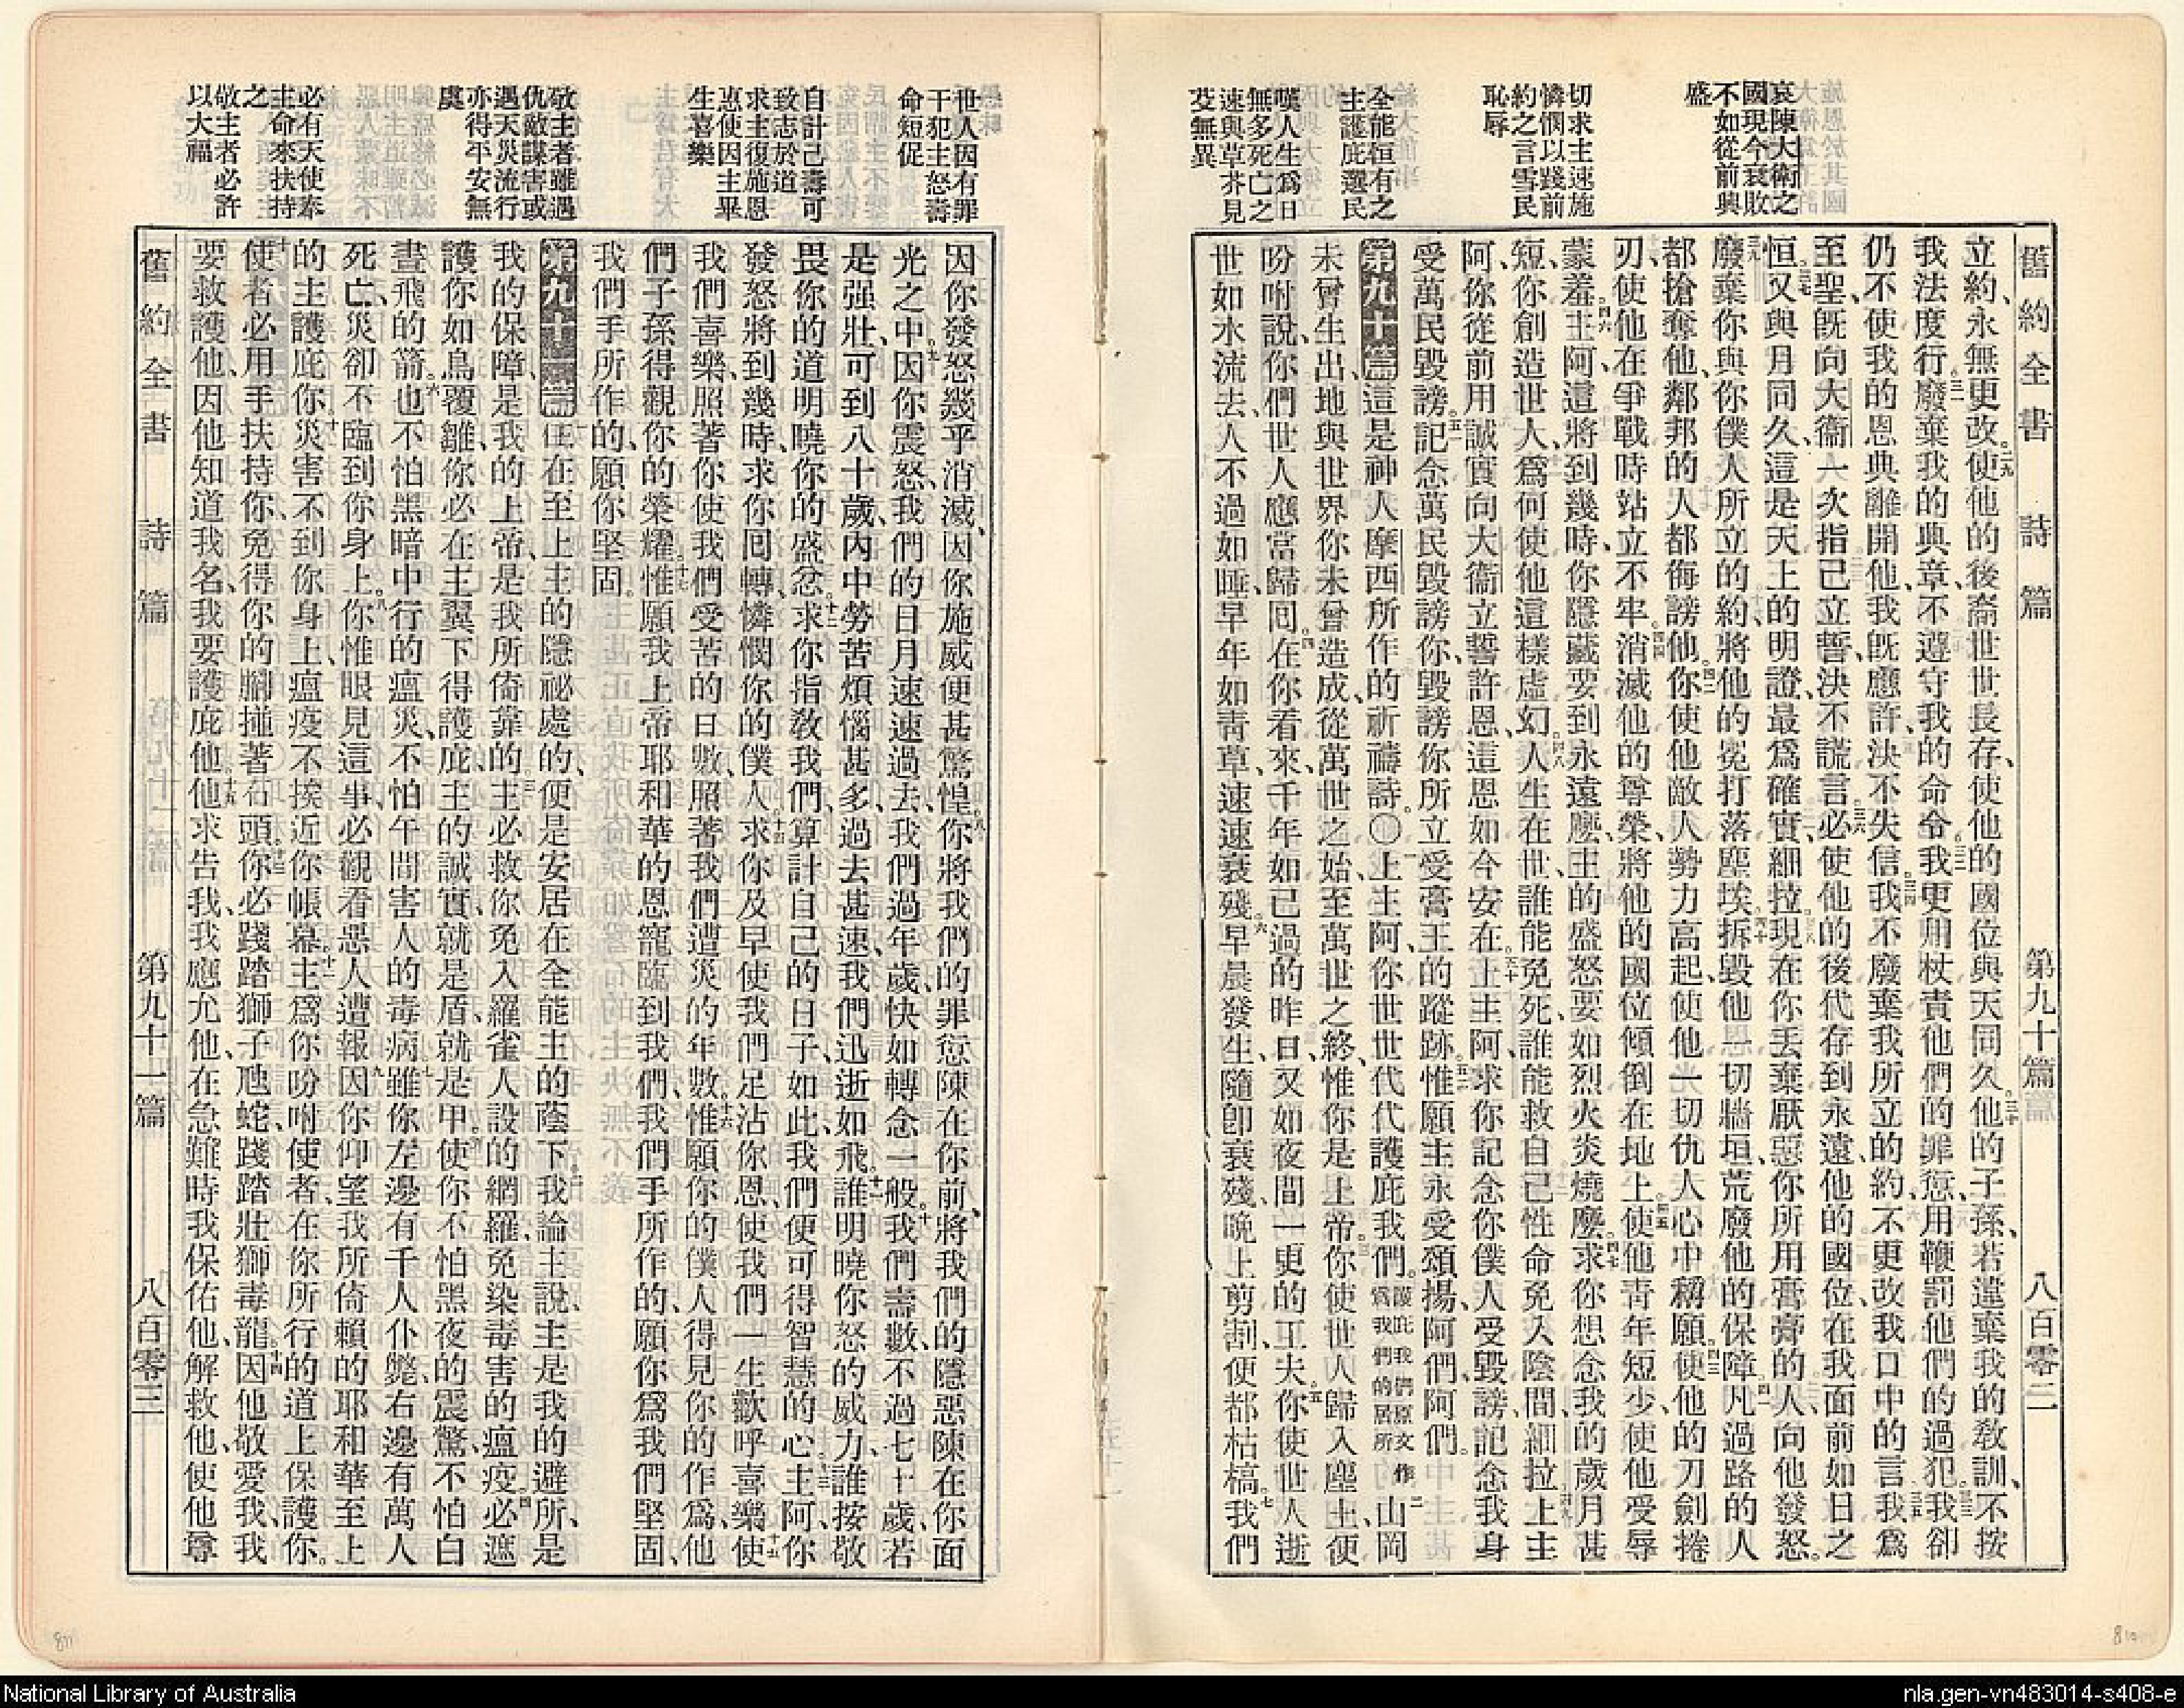 舊約全書 詩篇 第九十篇 八百零二
哀陳大衛之
國現今衰敗
不如從前興
盛
切求主速施
憐憫以踐前
約之言雪民
恥辱
全能恒有之
主護庇選民
嘆人生爲日
無多死亡之
速與草芥見
芟無異
立約、永無更改。二九使他的後裔世世長存、使他的國位與天同久。三十他的子孫、若違棄我的教訓、不按
我法度行。三一廢棄我的典章、不遵守我的命令。三二我更用杖責他們的罪愆、用鞭罰他們的過犯。三三我卻
仍不使我的恩典離開他、我旣應許、決不失信。三四我不廢棄我所立的約、不更改我口中的言。三五我爲
至聖、旣向大衞一次指己立誓、決不謊言。三六必使他的後代存到永遠、他的國位、在我面前如日之
恒。三七又與月同久、這是天上的明證、最爲確實、細拉。三八現在你丟棄厭惡你所用膏膏的人、向他發怒。
三九廢棄你與你僕人所立的約、將他的冕打落塵埃。四十拆毀他一切牆垣、荒廢他的保障。四一凡過路的人
都搶奪他、鄰邦的人都侮謗他。四二你使他敵人勢力高起、使他一切仇人心中稱願。四三使他的刀劍捲
刃、使他在爭戰時站立不牢。四四消滅他的尊榮、將他的國位傾倒在地上。四五使他靑年短少、使他受辱
蒙羞。四六主阿、這將到幾時、你隱藏要到永遠麼、主的盛怒要如烈火炎燒麼。四七求你想念我的歲月甚
短、你創造世人、爲何使他這樣虛幻。四八人生在世、誰能免死、誰能救自己性命免入陰間、細拉。四九上主
阿、你從前用誠實向大衞立誓許恩、這恩如今安在。五十主阿、求你記念你僕人受毀謗、記念我身
受萬民毀謗。五一記念萬民毀謗你、毀謗你所立受膏王的蹤跡。五二惟願主永受頌揚、阿們、阿們。
第九十篇 這是神人摩西所作的祈禱詩。〇一上主阿、你世世代代護庇我們。護庇我們原文作爲我們的居所 二山岡
未曾生出、地與世界你未曾造成、從萬世之始、至萬世之終、惟你是上帝。三你使世人歸入塵土、便
吩咐說、你們世人應當歸回。四在你看來、千年如已過的昨日、又如夜間一更的工夫。五你使世人逝
世如水流去、人不過如睡、早年如靑草、速速衰殘。六早晨發生、隨卽衰殘、晚上剪割、便都枯槁。七我們
世人因有罪
干犯主怒壽
命短促
自計己壽可
致志於道
求主復施恩
惠使因主畢
生喜樂
敬主者雖遇
仇敵謀害或
遇天災流行
亦得平安無
虞
必有天使奉
主命來扶持
之
敬主者必許
以大福
因你發怒幾乎消滅、因你施威便甚驚惶。八你將我們的罪愆陳在你前、將我們的隱惡陳在你面
光之中。九因你震怒、我們的日月速速過去、我們過年歲快如轉念一般。十我們壽數不過七十歲、若
是强壯、可到八十歲、內中勞苦煩惱甚多、過去甚速、我們迅逝如飛。十一誰明曉你怒的威力、誰按敬
畏你的道明曉你的盛忿。十二求你指教我們、算計自己的日子、如此我們便可得智慧的心。十三主阿、你
發怒將到幾時、求你回轉憐憫你的僕人。十四求你及早使我們足沾你恩、使我們一生歡呼喜樂。十五使
我們喜樂、照著你使我們受苦的日數、照著我們遭災的年數。十六惟願你的僕人得見你的作爲、他
們子孫得觀你的榮耀。十七惟願我上帝耶和華的恩寵臨到我們、我們手所作的、願你爲我們堅固、
我們手所作的、願你堅固。
第九十一篇 一住在至上主的隱祕處的、便是安居在全能主的蔭下。二我論主說、主是我的避所、是
我的保障、是我的上帝、是我所倚靠的。三主必救你免入羅雀人設的網羅、免染毒害的瘟疫。四必遮
護你如鳥覆雛、你必在主翼下得護庇、主的誠實、就是盾就是甲。五使你不怕黑夜的震驚、不怕白
晝飛的箭。六也不怕黑暗中行的瘟災、不怕午間害人的毒病。七雖你左邊有千人仆斃、右邊有萬人
死亡、災卻不臨到你身上。八你惟眼見這事、必觀看惡人遭報。九因你仰望我所倚賴的耶和華至上
的主護庇你。十災害不到你身上、瘟疫不挨近你帳幕。十一主爲你吩咐使者、在你所行的道上保護你。
十二使者必用手扶持你、免得你的腳撞著石頭。十三你必踐踏獅子虺蛇、踐踏壯獅毒龍。十四因他敬愛我、我
要救護他、因他知道我名、我要護庇他。十五他求告我、我應允他、在急難時我保佑他、解救他、使他尊
舊約全書 詩篇 第九十一篇 八百零三
National Library of Australia
nla.gen-vn483014-s408-e